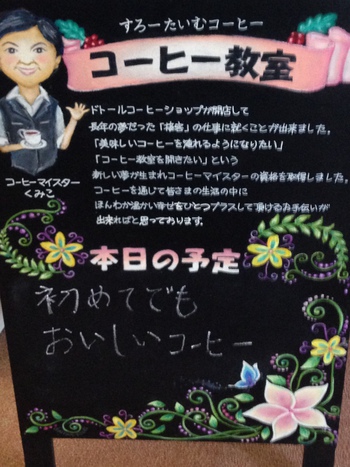 すろーたいむコーヒー
コーヒー教室
ドトールコーヒーショップが開店して
長年の夢だった「接客」の仕事に就くことが出来ました。
「美味しいコーヒーを淹れるようになりたい」
「コーヒー教室を開きたい」という
新しい夢が生まれコーヒーマイスターの資格を取得しました。
コーヒーを通じて皆さまの生活の中に
ほんわか温かい幸せをひとつプラスして頂けるお手伝いが
出来ればと思っております。
コーヒーマイスター
くみこ
本日の予定
初めてでも
おいしいコーヒー